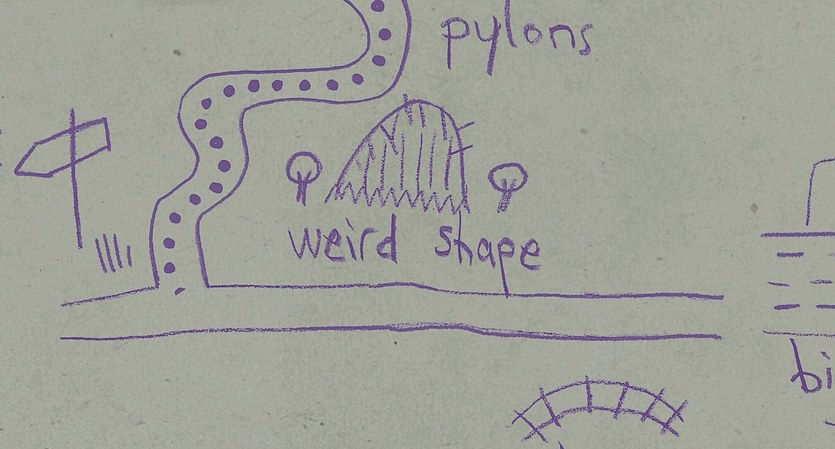 pylons
weird shape
bi